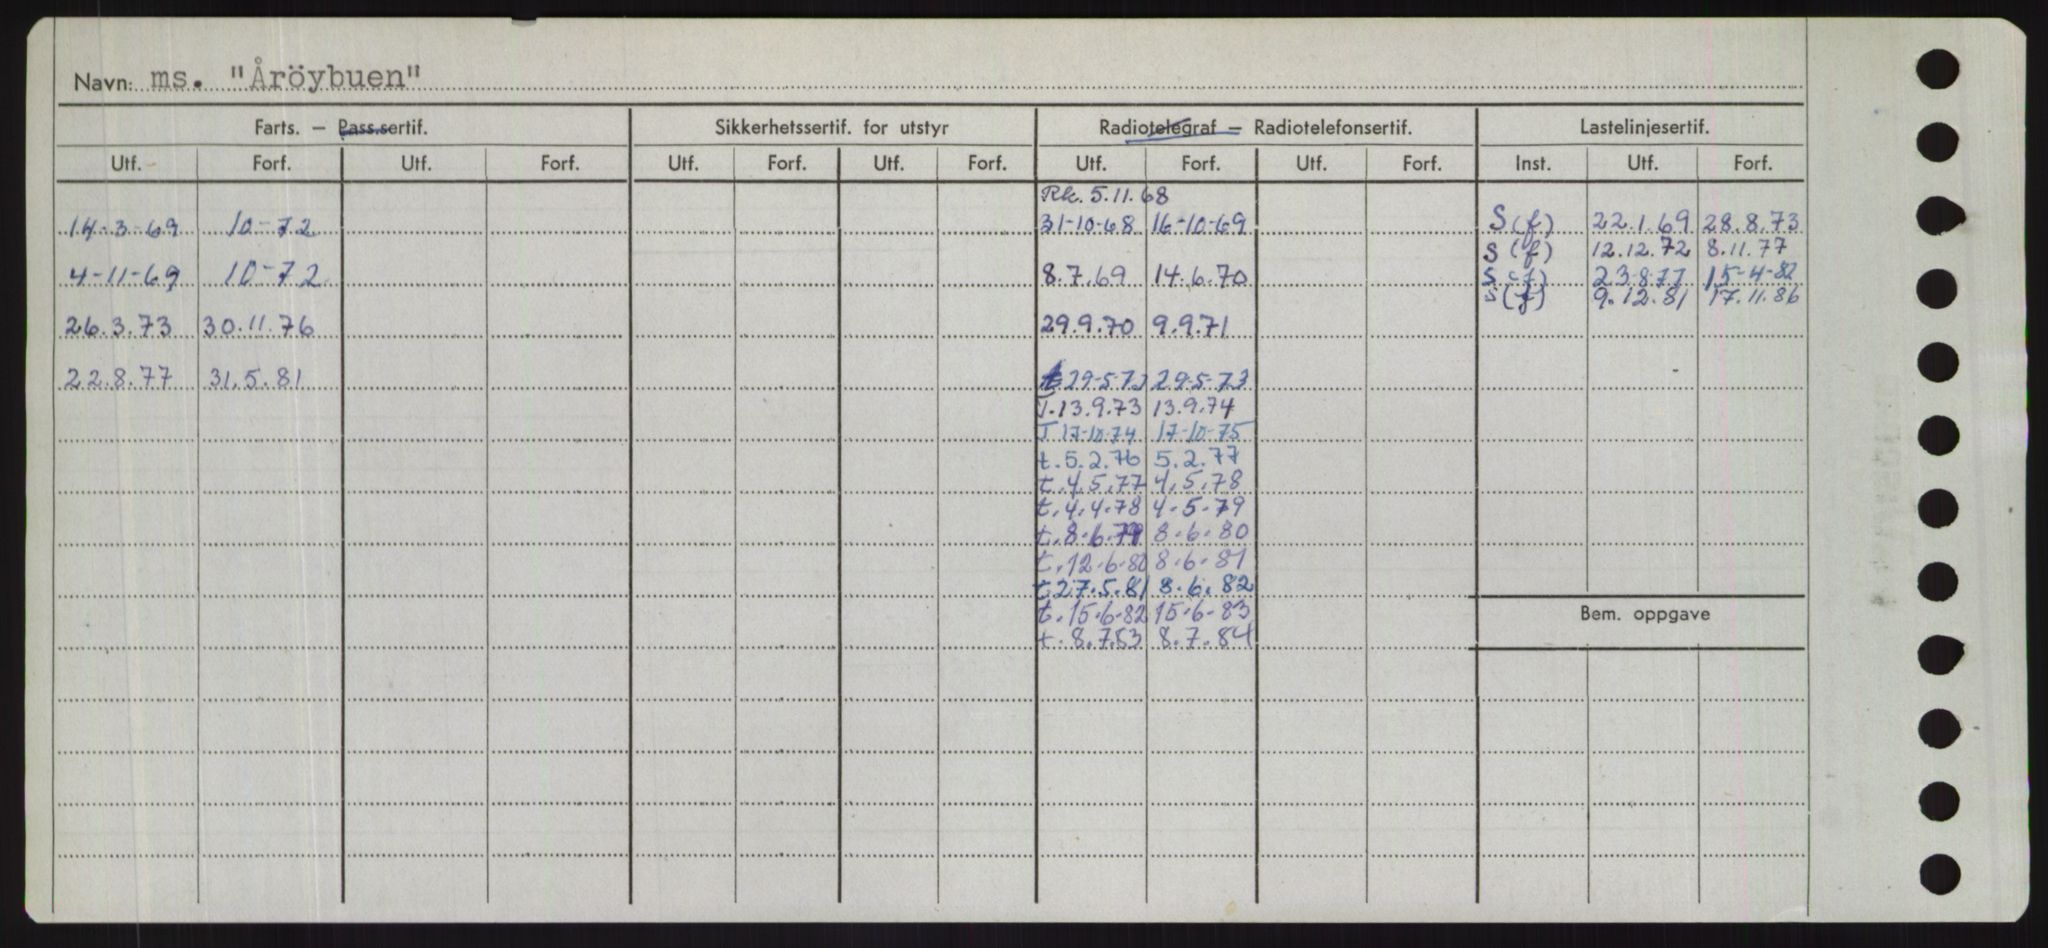 Navn: ms. "Åröybuen"
Farts. – Pass.sertif. Sikkerhetssertif. for utstyr Radiotelegraf – Radiotelefonsertif. Lastelinjesertif.
Utf. Forf. Utf. Forf. Utf. Forf. Utf. Forf. Utf. Forf. Utf. Forf. Inst. Utf. Forf.
Rk. 5.11.68
14-3-69 10-72 31-10-68 16-10-69 S (f) 22.1.69 28.8.73
S (f) 12.12.72 8.11.77
4-11-69 10-72 8.7.69 14.6.70 S (f) 23.8.77 15-4-82
S (f) 9.12.81 17.11.86
26.3.73 30.11.76 29.9.70 9.9.71
22.8.77 31.5.81 t 29-5-72 29-5-73
T. 13.9.73 13.9.74
T 17-10-74 17-10-75
t. 5.2.76 5.2.77
t. 4.5.77 4.5.78
t. 4.4.78 4-5-79
t. 8.6.79 8.6.80
t. 12.6.80 8.6.81
t. 27.5.81 8.6.82
t. 15.6.82 15.6.83
Bem. oppgave
t. 8.7.83 8.7.84